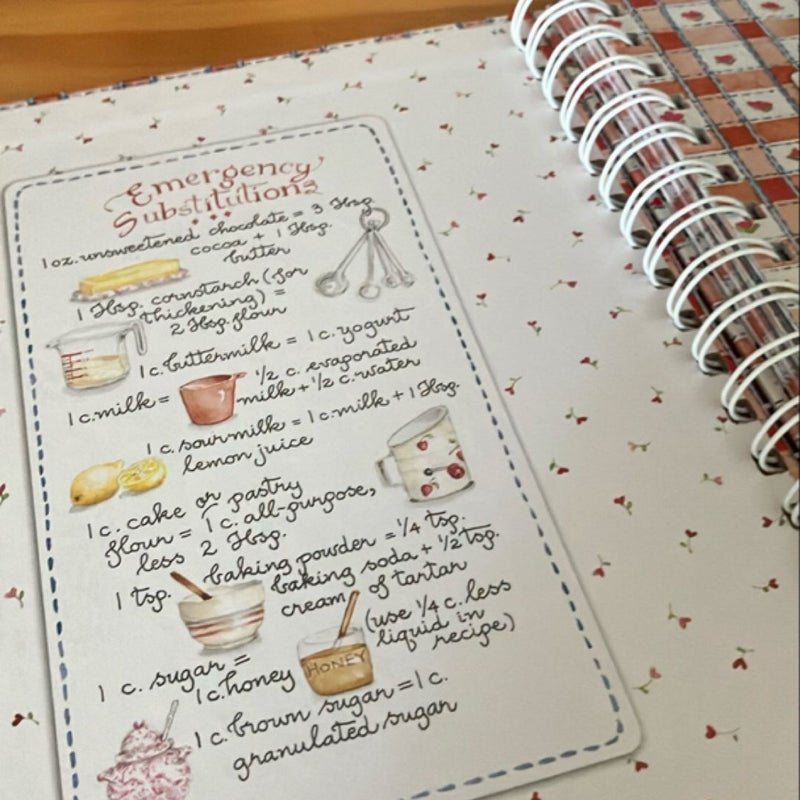 Emergency
Substitutions
1 oz. unsweetened chocolate = 3 Tbsp.
cocoa + 1 Tbsp.
butter
1 Tbsp. cornstarch (for
thickening) =
2 Tbsp. flour
1 c. buttermilk = 1 c. yogurt
1 c. milk = 1/2 c. evaporated
milk + 1/2 c. water
1 c. sour milk = 1 c. milk + 1 Tbsp.
lemon juice
1 c. cake or pastry
flour = 1 c. all-purpose,
less 2 Tbsp.
1 tsp. baking powder = 1/4 tsp.
baking soda + 1/2 tsp.
cream of tartar
1 c. sugar =
1 c. honey
HONEY
(use 1/4 c. less
liquid in
recipe)
1 c. brown sugar = 1 c.
granulated sugar